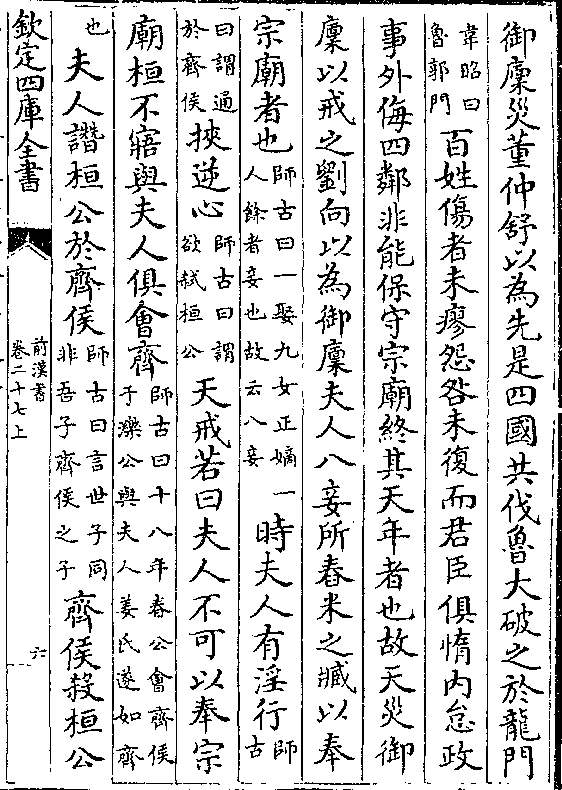 御廩災董仲舒以為先是四國共伐魯大破之於龍門
韋昭曰魯郭門百姓傷者未瘳怨咎未復而君臣俱惰内怠政
事外侮四鄰非能保守宗廟終其天年者也故天災御
廩以戒之劉向以為御廩夫人八妾所舂米之臧以奉
宗廟者也師古曰一娶九女正嫡一人餘者妾也故云八妾時夫人有淫行師古
曰謂通於齊侯挾逆心師古曰謂欲弑桓公天戒若曰夫人不可以奉宗
廟桓不寤與夫人俱會齊師古曰十八年春公會齊侯于濼公與夫人姜氏遂如齊
也夫人譖桓公於齊侯師古曰言世子同非吾子齊侯之子齊侯殺桓公
欽定四庫全書
前漢書
卷二十七上
六